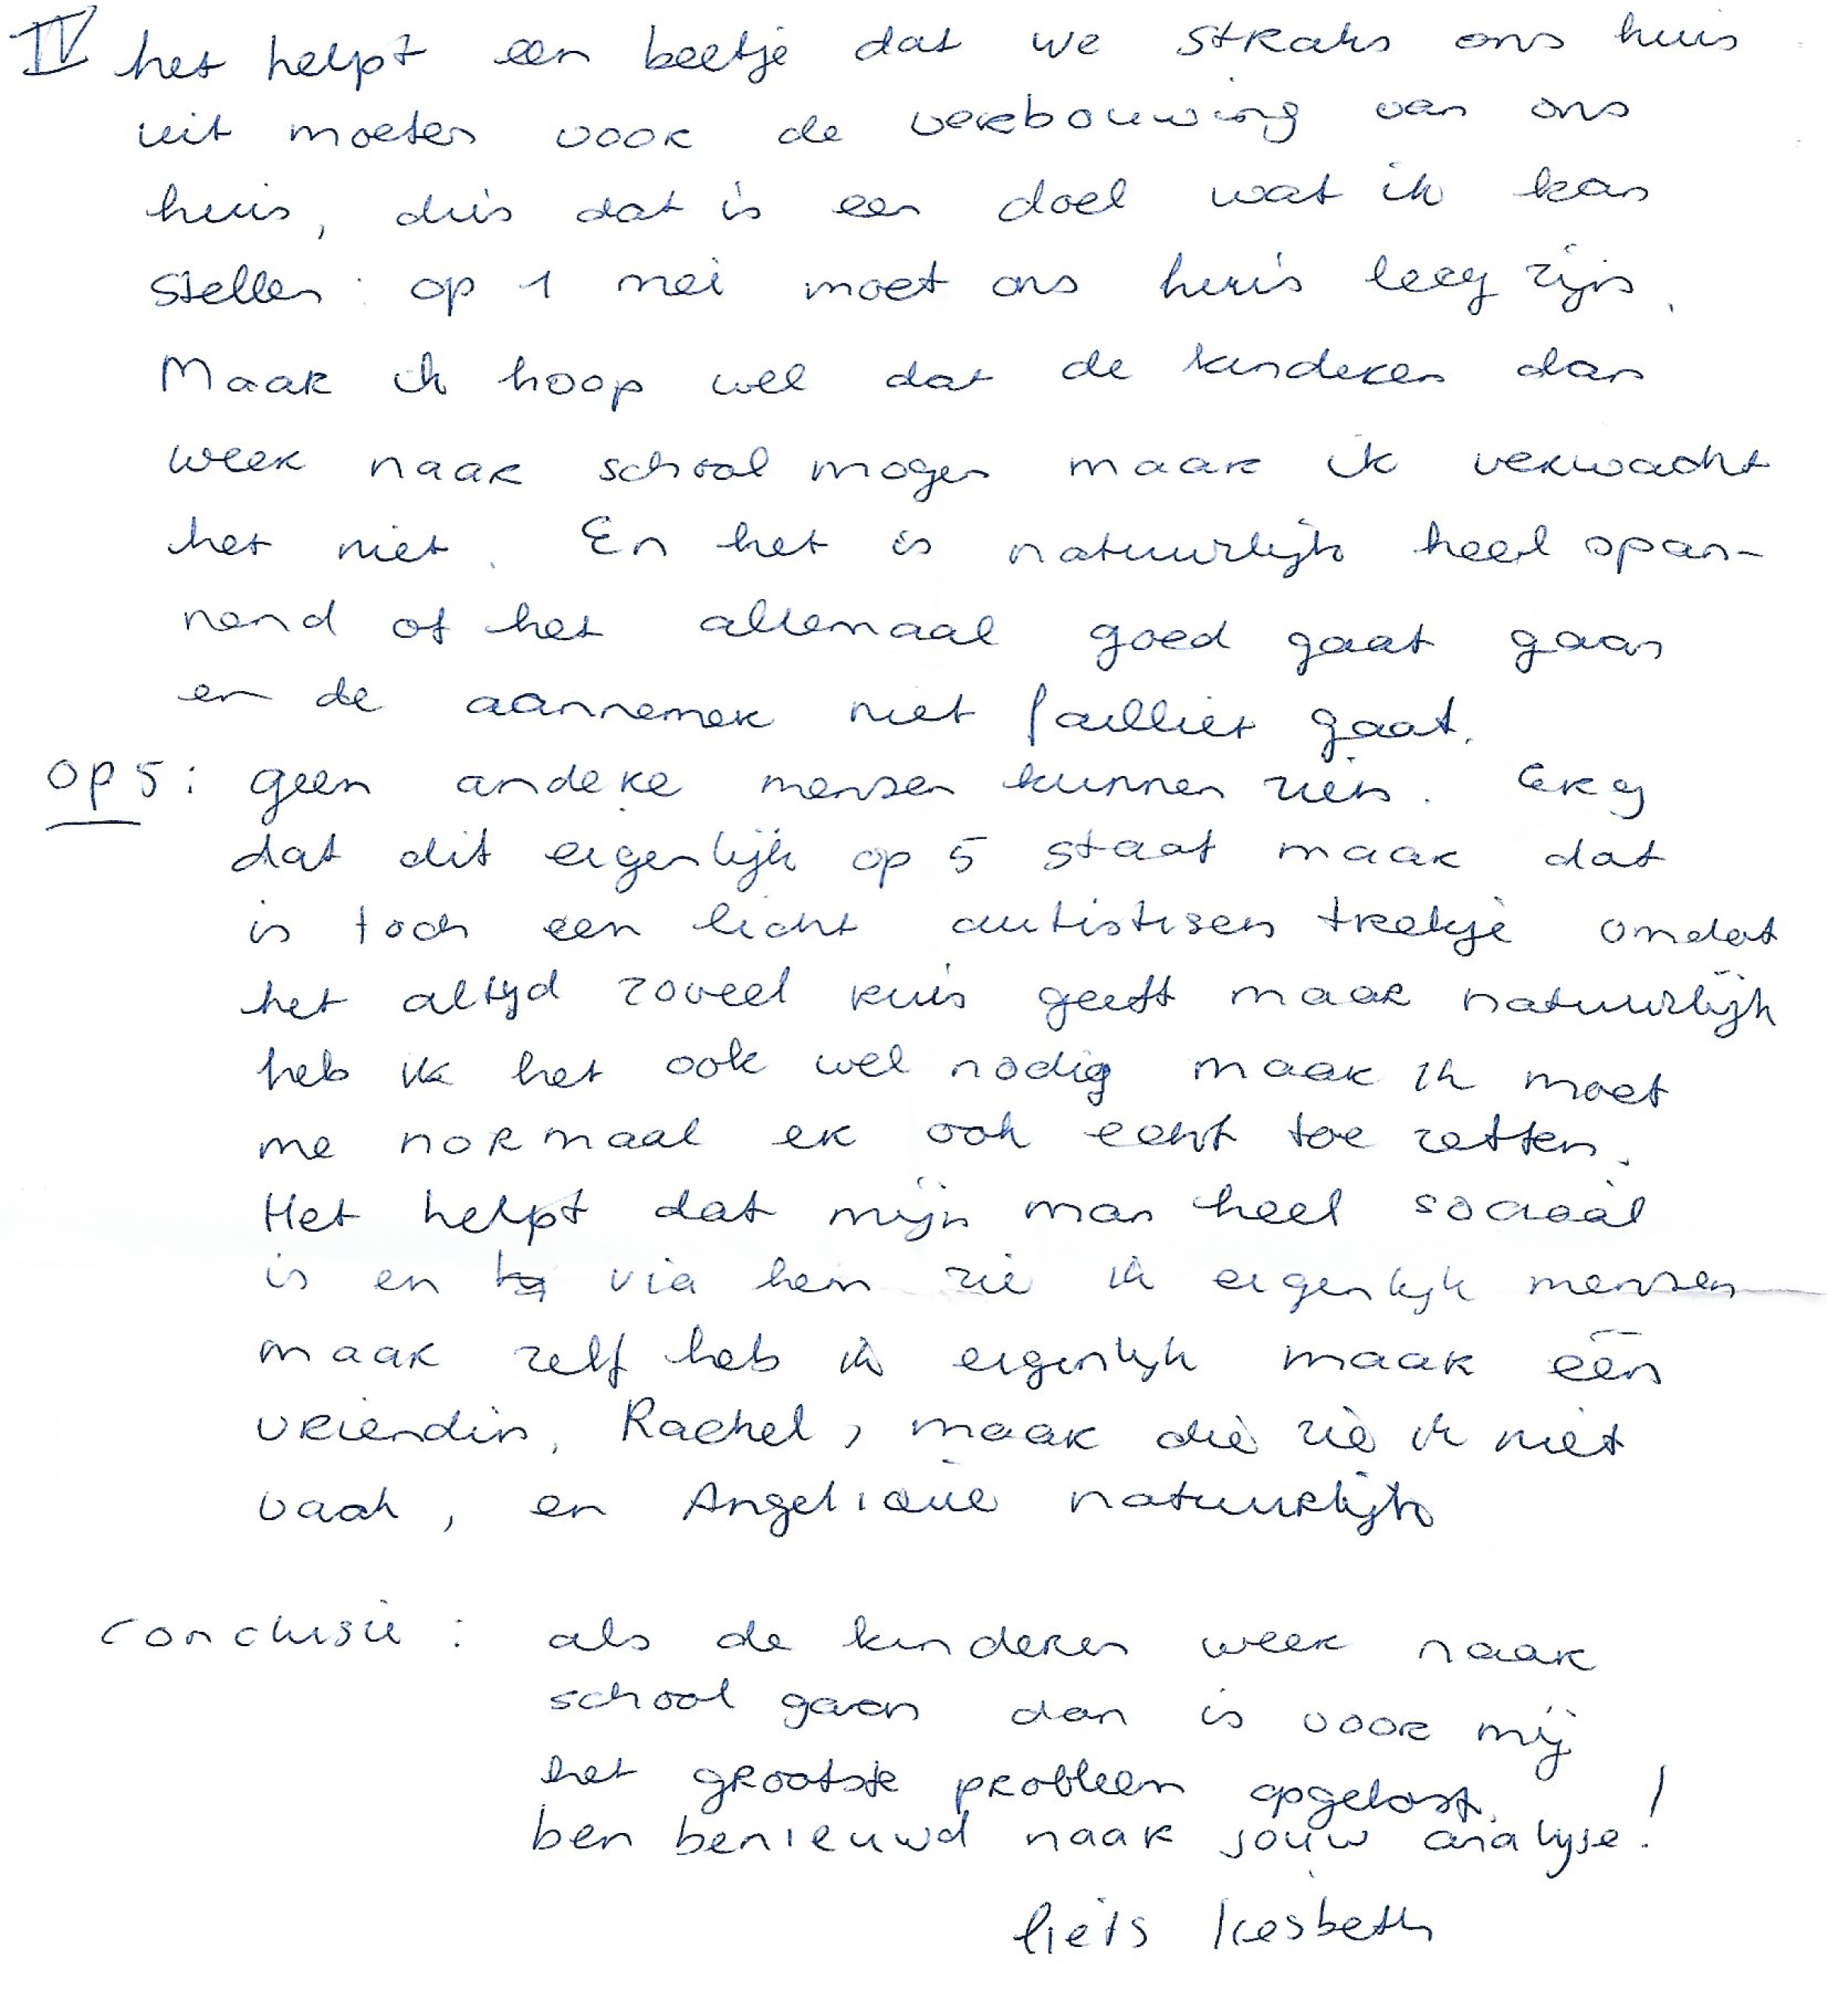 IV het helpt een beetje dat we straks ons huis
uit moeten voor de verbouwing van ons
huis, dus dat is een doel wat ik kan
stellen: op 1 mei moet ons huis leeg zijn.
Maar ik hoop wel dat de kinderen dan
weer naar school mogen maar ik verwacht
het niet. En het is natuurlijk heel span-
nend of het allemaal goed gaat gaan
en de aannemer niet failliet gaat.
op 5: geen andere mensen kunnen zien. Erg
dat dit eigenlijk op 5 staat maar dat
is toch een licht autistisch trekje omdat
het altijd zoveel ruis geeft maar natuurlijk
heb ik het ook wel nodig maar ik moet
me normaal er ook echt toe zetten.
Het helpt dat mijn man heel sociaal
is en via hem zie ik eigenlijk mensen
maar zelf heb ik eigenlijk maar één
vriendin, Rachel, maar die zie ik niet
vaak, en Angelique natuurlijk
conclusie: als de kinderen weer naar
school gaan dan is voor mij
het grootste probleem opgelost.
ben benieuwd naar jouw analyse!
liefs Liesbeth